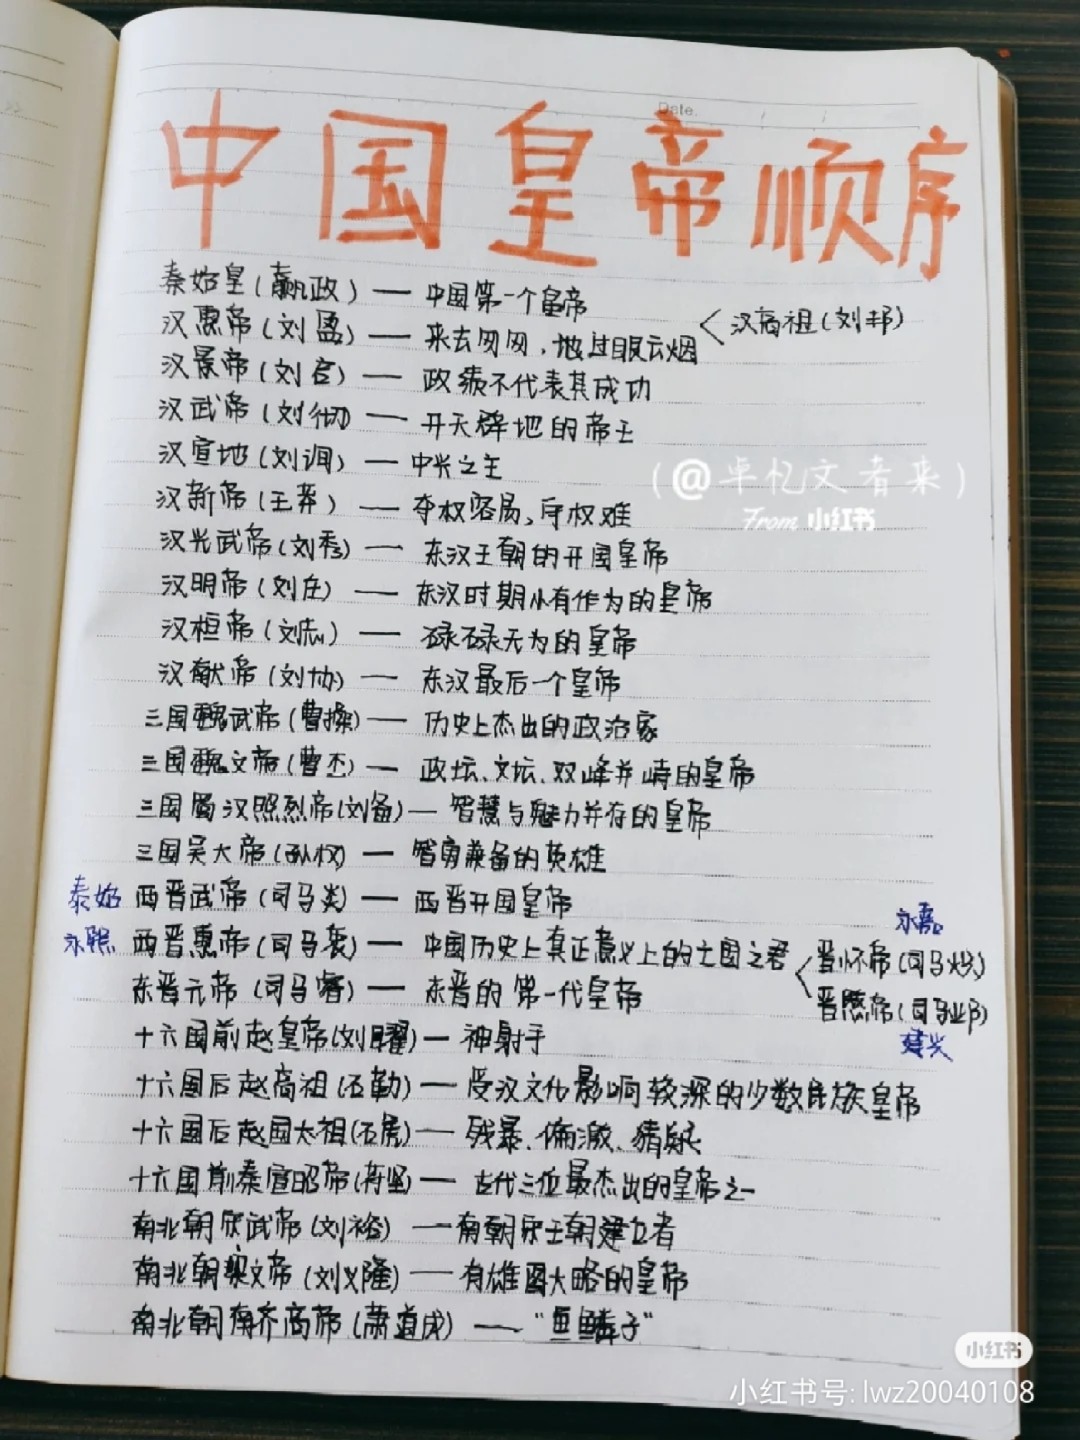 Date.
中国皇帝顺序
秦始皇(嬴政)— 中国第一个皇帝
<汉高祖(刘邦)
汉惠帝(刘盈)— 来去匆匆,她过眼云烟
汉景帝(刘启)— 政绩不代表其成功
汉武帝(刘彻)— 开天辟地的帝王
汉宣地(刘询)— 中兴之主
(@卓忆文者来)
From 小红书
汉新帝(王莽)— 夺权容易、守权难
汉光武帝(刘秀)— 东汉王朝的开国皇帝
汉明帝(刘庄)— 东汉时期小有作为的皇帝
汉桓帝(刘志)— 碌碌无为的皇帝
汉献帝(刘协)— 东汉最后一个皇帝
三国魏武帝(曹操)— 历史上杰出的政治家
三国魏文帝(曹丕)— 政坛、文坛、双峰并峙的皇帝
三国蜀汉照烈帝(刘备)— 智慧与魅力并存的皇帝
三国吴大帝(孙权)— 智勇兼备的英雄
泰始 西晋武帝(司马炎)— 西晋开国皇帝
永嘉
永熙 西晋惠帝(司马衷)— 中国历史上真正意义上的亡国之君 <晋怀帝(司马炽)
晋愍帝(司马邺)
建兴
东晋元帝(司马睿)— 东晋的第一代皇帝
十六国前赵皇帝(刘曜)— 神射手
十六国后赵高祖(石勒)— 受汉文化影响较深的少数民族皇帝
十六国后赵国太祖(石虎)— 残暴、偏激、猜疑
十六国前秦宣昭帝(苻坚)— 古代三位最杰出的皇帝之一
南北朝宋武帝(刘裕)— 南朝宋王朝建立者
南北朝宋文帝(刘义隆)— 有雄图大略的皇帝
南北朝南齐高帝(萧道成)— "鱼鳞子"
小红书
小红书号: lwz20040108